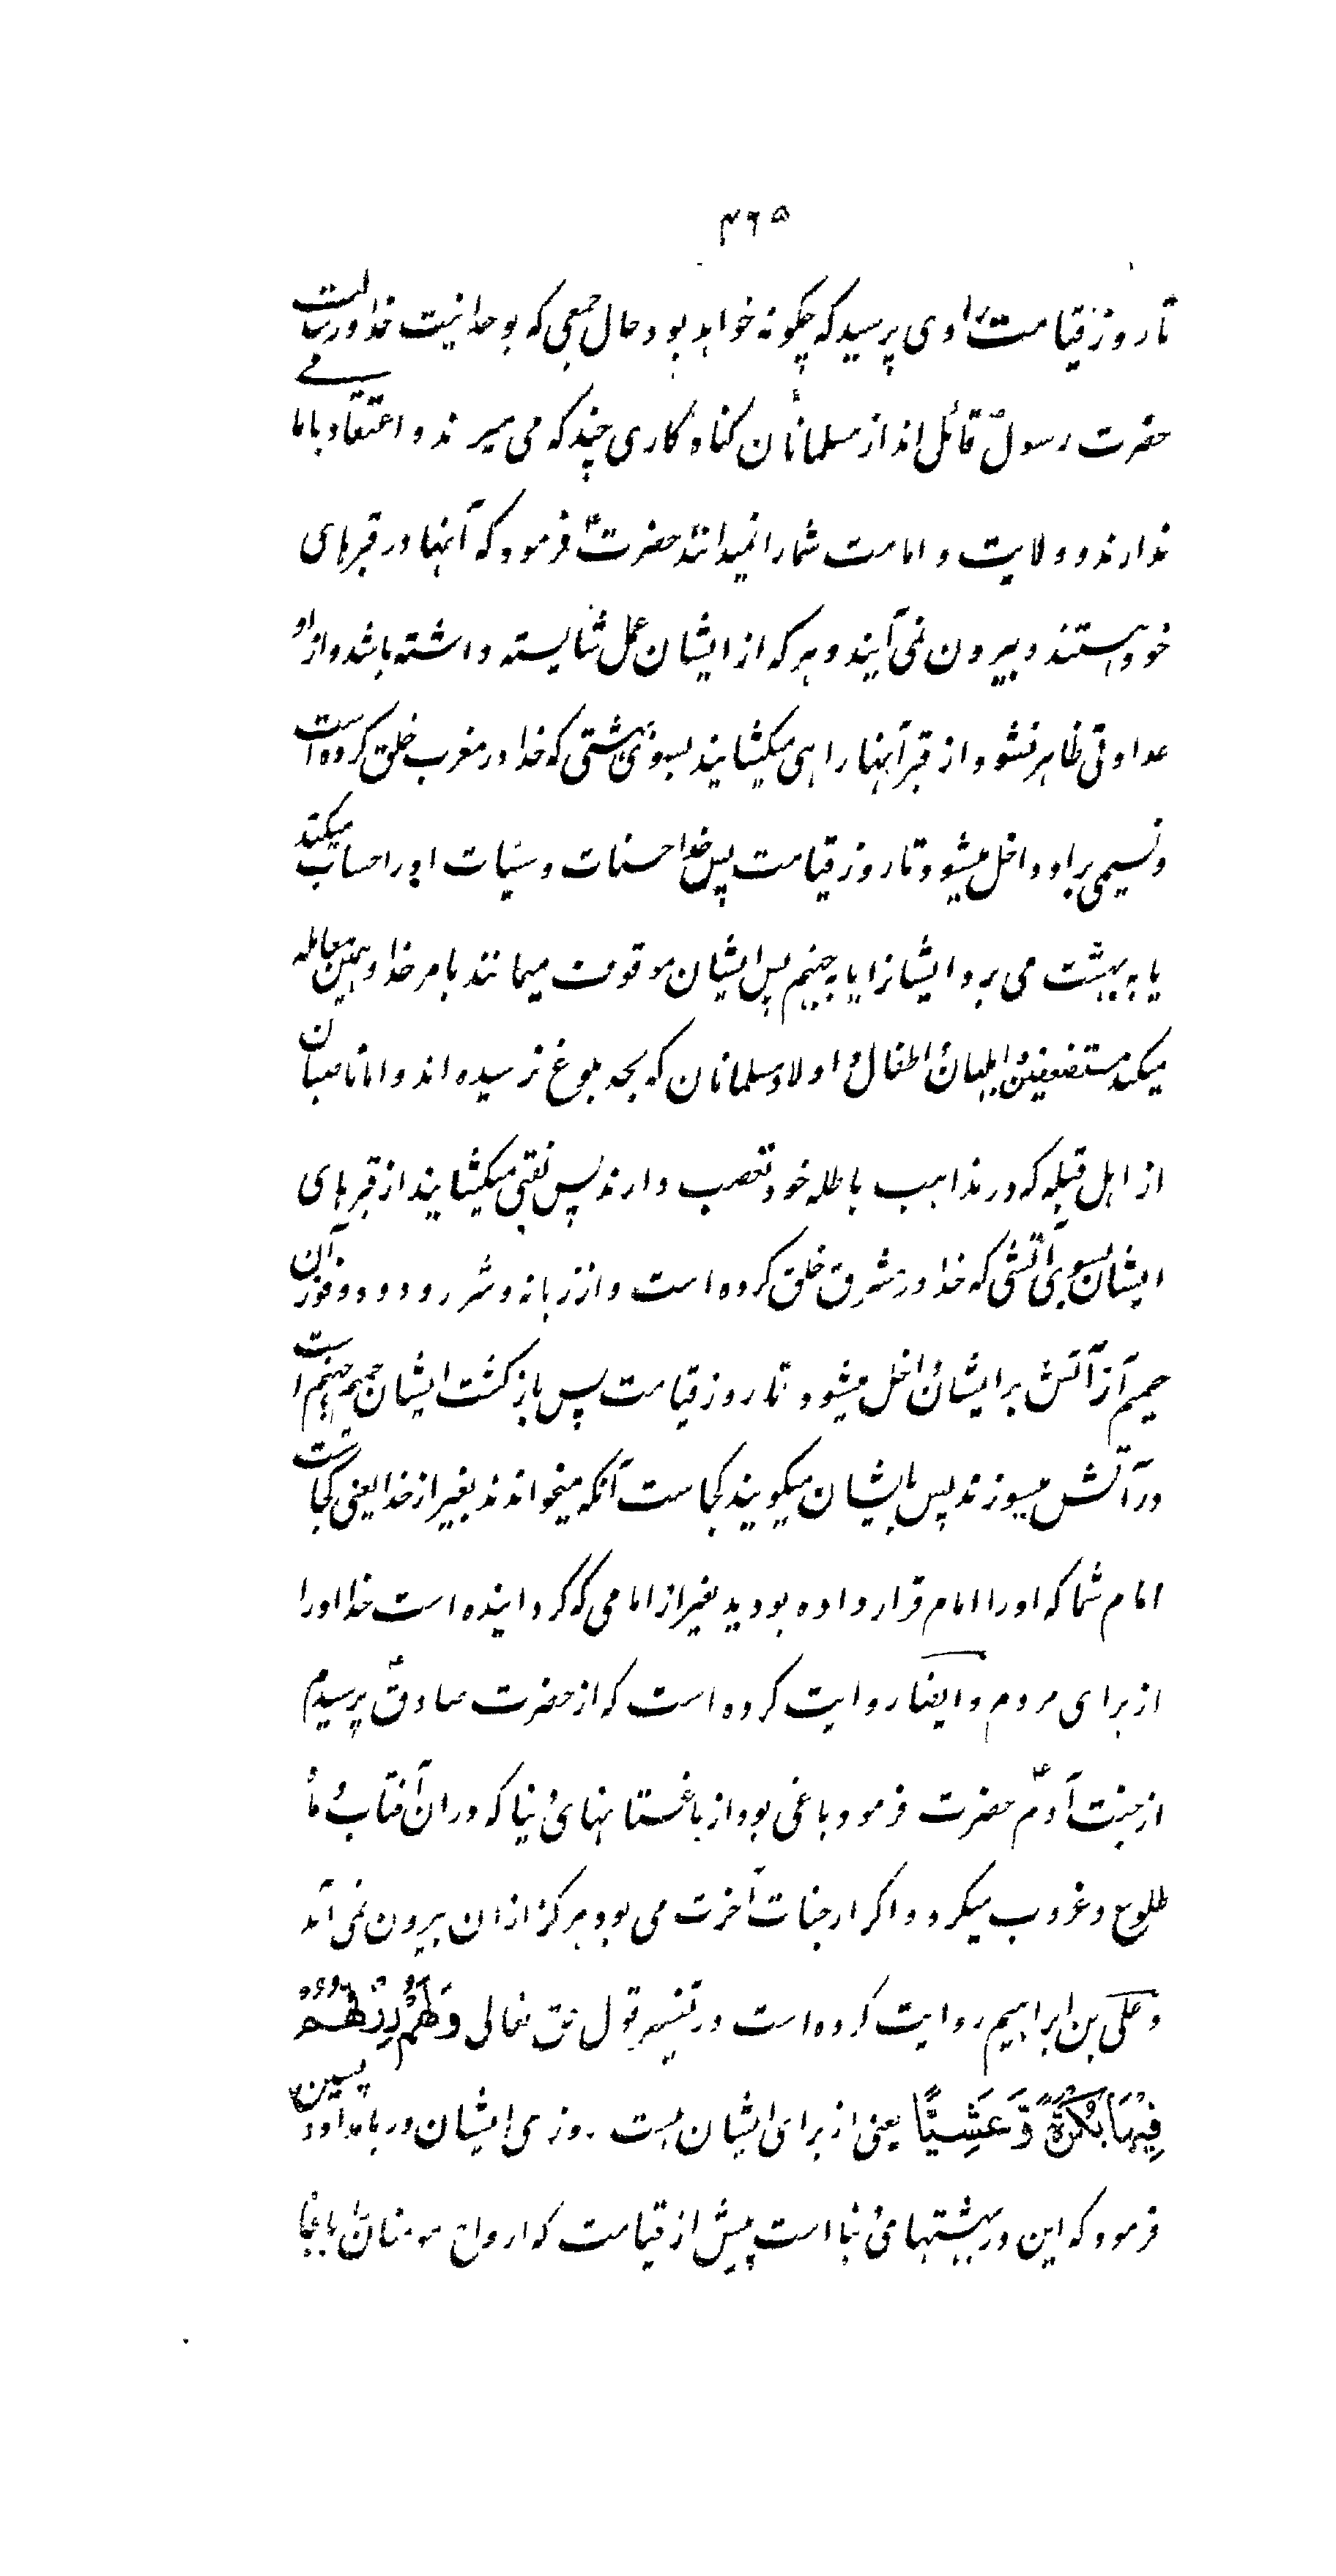 ۴۶۵
تا روز قیامت راوی پرسید که چگونه خواهد بود حال جمعی که بوحدانیت خدا و رسالت
حضرت رسولؐ قائل اند از مسلمانان گناه کاری چند که می میرند و اعتقاد بامامی
ندارند و ولایت و امامت شما را نمیدانند حضرتؑ فرمود که آنها در قبرهای
خود هستند و بیرون نمی آیند و هر که از ایشان عمل شایسته داشته باشد و از او
عداوتی ظاهر نشود از قبر آنها راهی میکشایند بسوی بهشتی که خدا در مغرب خلق کرده است
و نسیمی بر او داخل میشود تا روز قیامت پس خدا حسنات و سیئات او را حساب میکند
یا به بهشت می برد ایشانرا یا به جهنم پس ایشان موقوف میمانند بامر خدا و همین معامله
میکند مستضعفین و ابلهان و اطفال و اولاد مسلمانان که بحد بلوغ نرسیده اند و اما ناصبیان
از اهل قبله که در مذاهب باطله خود تعصب دارند پس نقبی میکشایند از قبرهای
ایشان بسوی آتشی که خدا در مشرق خلق کرده است و از زبانه و شرر و دود و فوران
حمیم آن آتش بر ایشان داخل میشود تا روز قیامت پس بازگشت ایشان حمیم جهنم است
در آتش میسوزند پس بایشان میگویند کجاست آنکه میخواندند بغیر از خدا یعنی کجاست
امام شما که او را امام قرار داده بودید بغیر از امامی که گردانیده است خدا او را
از برای مردم و ایضا روایت کرده است که از حضرت صادقؑ پرسیدم
از جنت آدمؑ حضرت فرمود باغی بود از باغستانهای دنیا که در ان آفتاب و ماه
طلوع و غروب میکرد و اگر از جنات آخرت می بود هرگز از ان بیرون نمی آمد
و علی بن ابراهیم روایت کرده است در تفسیر قول حق تعالی وَلَهُمْ رِزْقُهُمْ
فِیْهَا بُکْرَةً وَّعَشِیًّا یعنی از برای ایشان است روزی ایشان در بامداد و پسین
فرمود که این در بهشتهای دنیا است پیش از قیامت که ارواح مومنان بآنجا